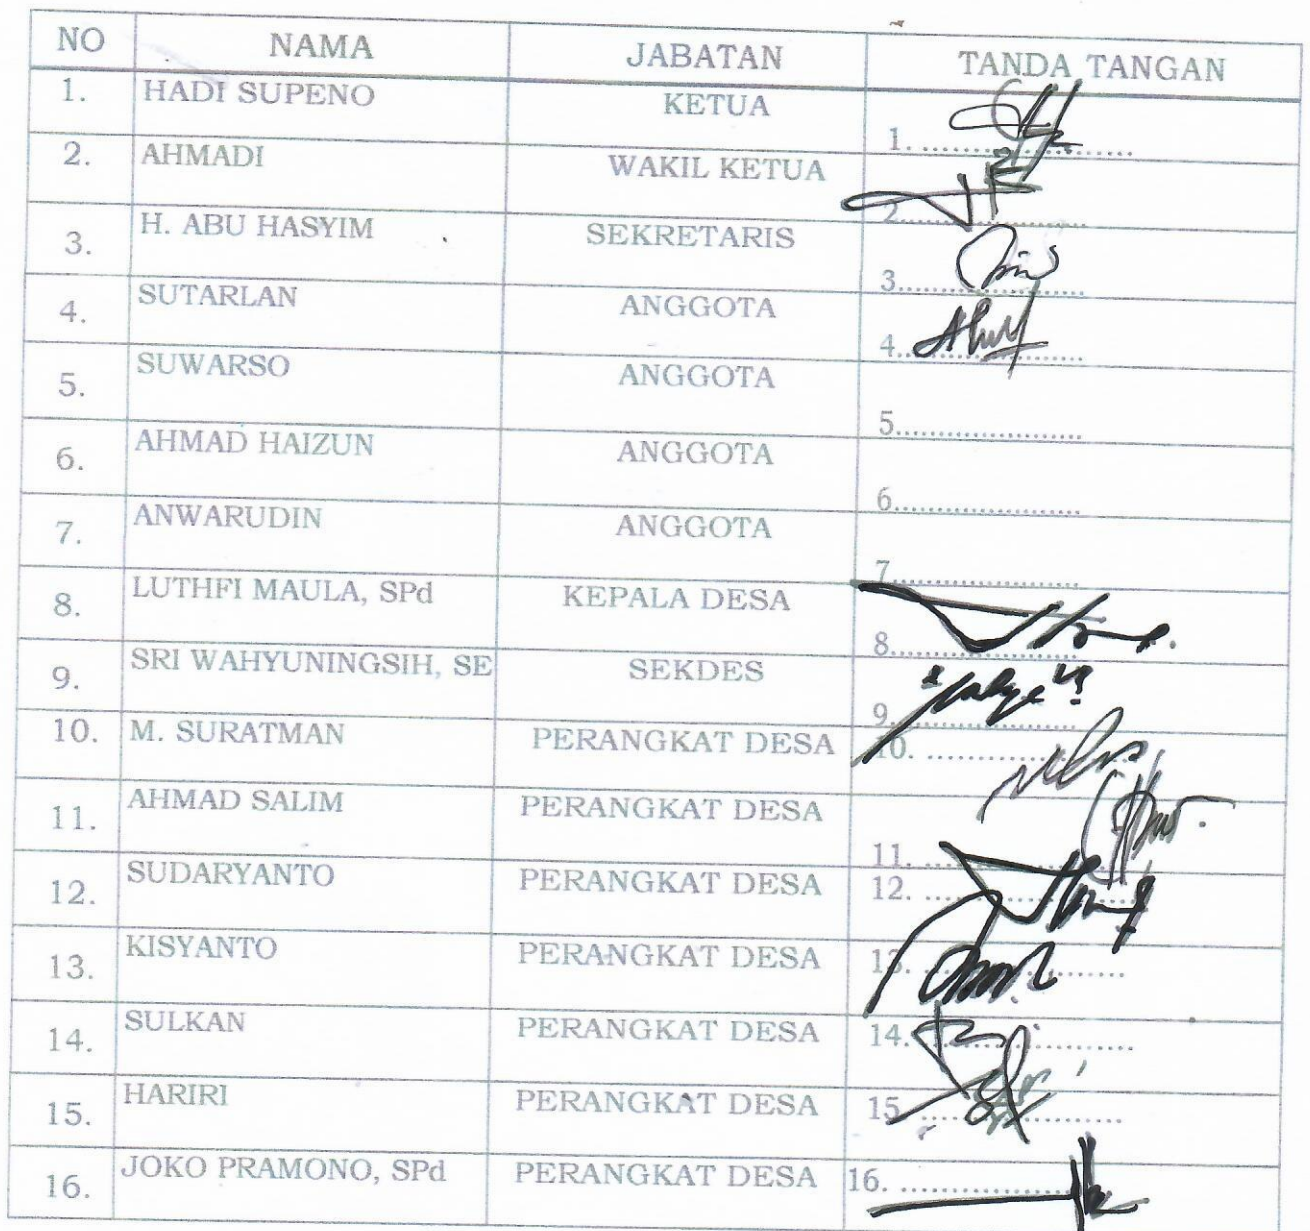 NO NAMA JABATAN TANDA TANGAN
1. HADI SUPENO KETUA 1. ......................
2. AHMADI WAKIL KETUA 2......................
3. H. ABU HASYIM SEKRETARIS 3......................
4. SUTARLAN ANGGOTA 4......................
5. SUWARSO ANGGOTA 5......................
6. AHMAD HAIZUN ANGGOTA 6......................
7. ANWARUDIN ANGGOTA 7......................
8. LUTHFI MAULA, SPd KEPALA DESA 8......................
9. SRI WAHYUNINGSIH, SE SEKDES 9......................
10. M. SURATMAN PERANGKAT DESA 10. ......................
11. AHMAD SALIM PERANGKAT DESA 11. ......................
12. SUDARYANTO PERANGKAT DESA 12. ......................
13. KISYANTO PERANGKAT DESA 13. ......................
14. SULKAN PERANGKAT DESA 14. ......................
15. HARIRI PERANGKAT DESA 15. ......................
16. JOKO PRAMONO, SPd PERANGKAT DESA 16. ......................